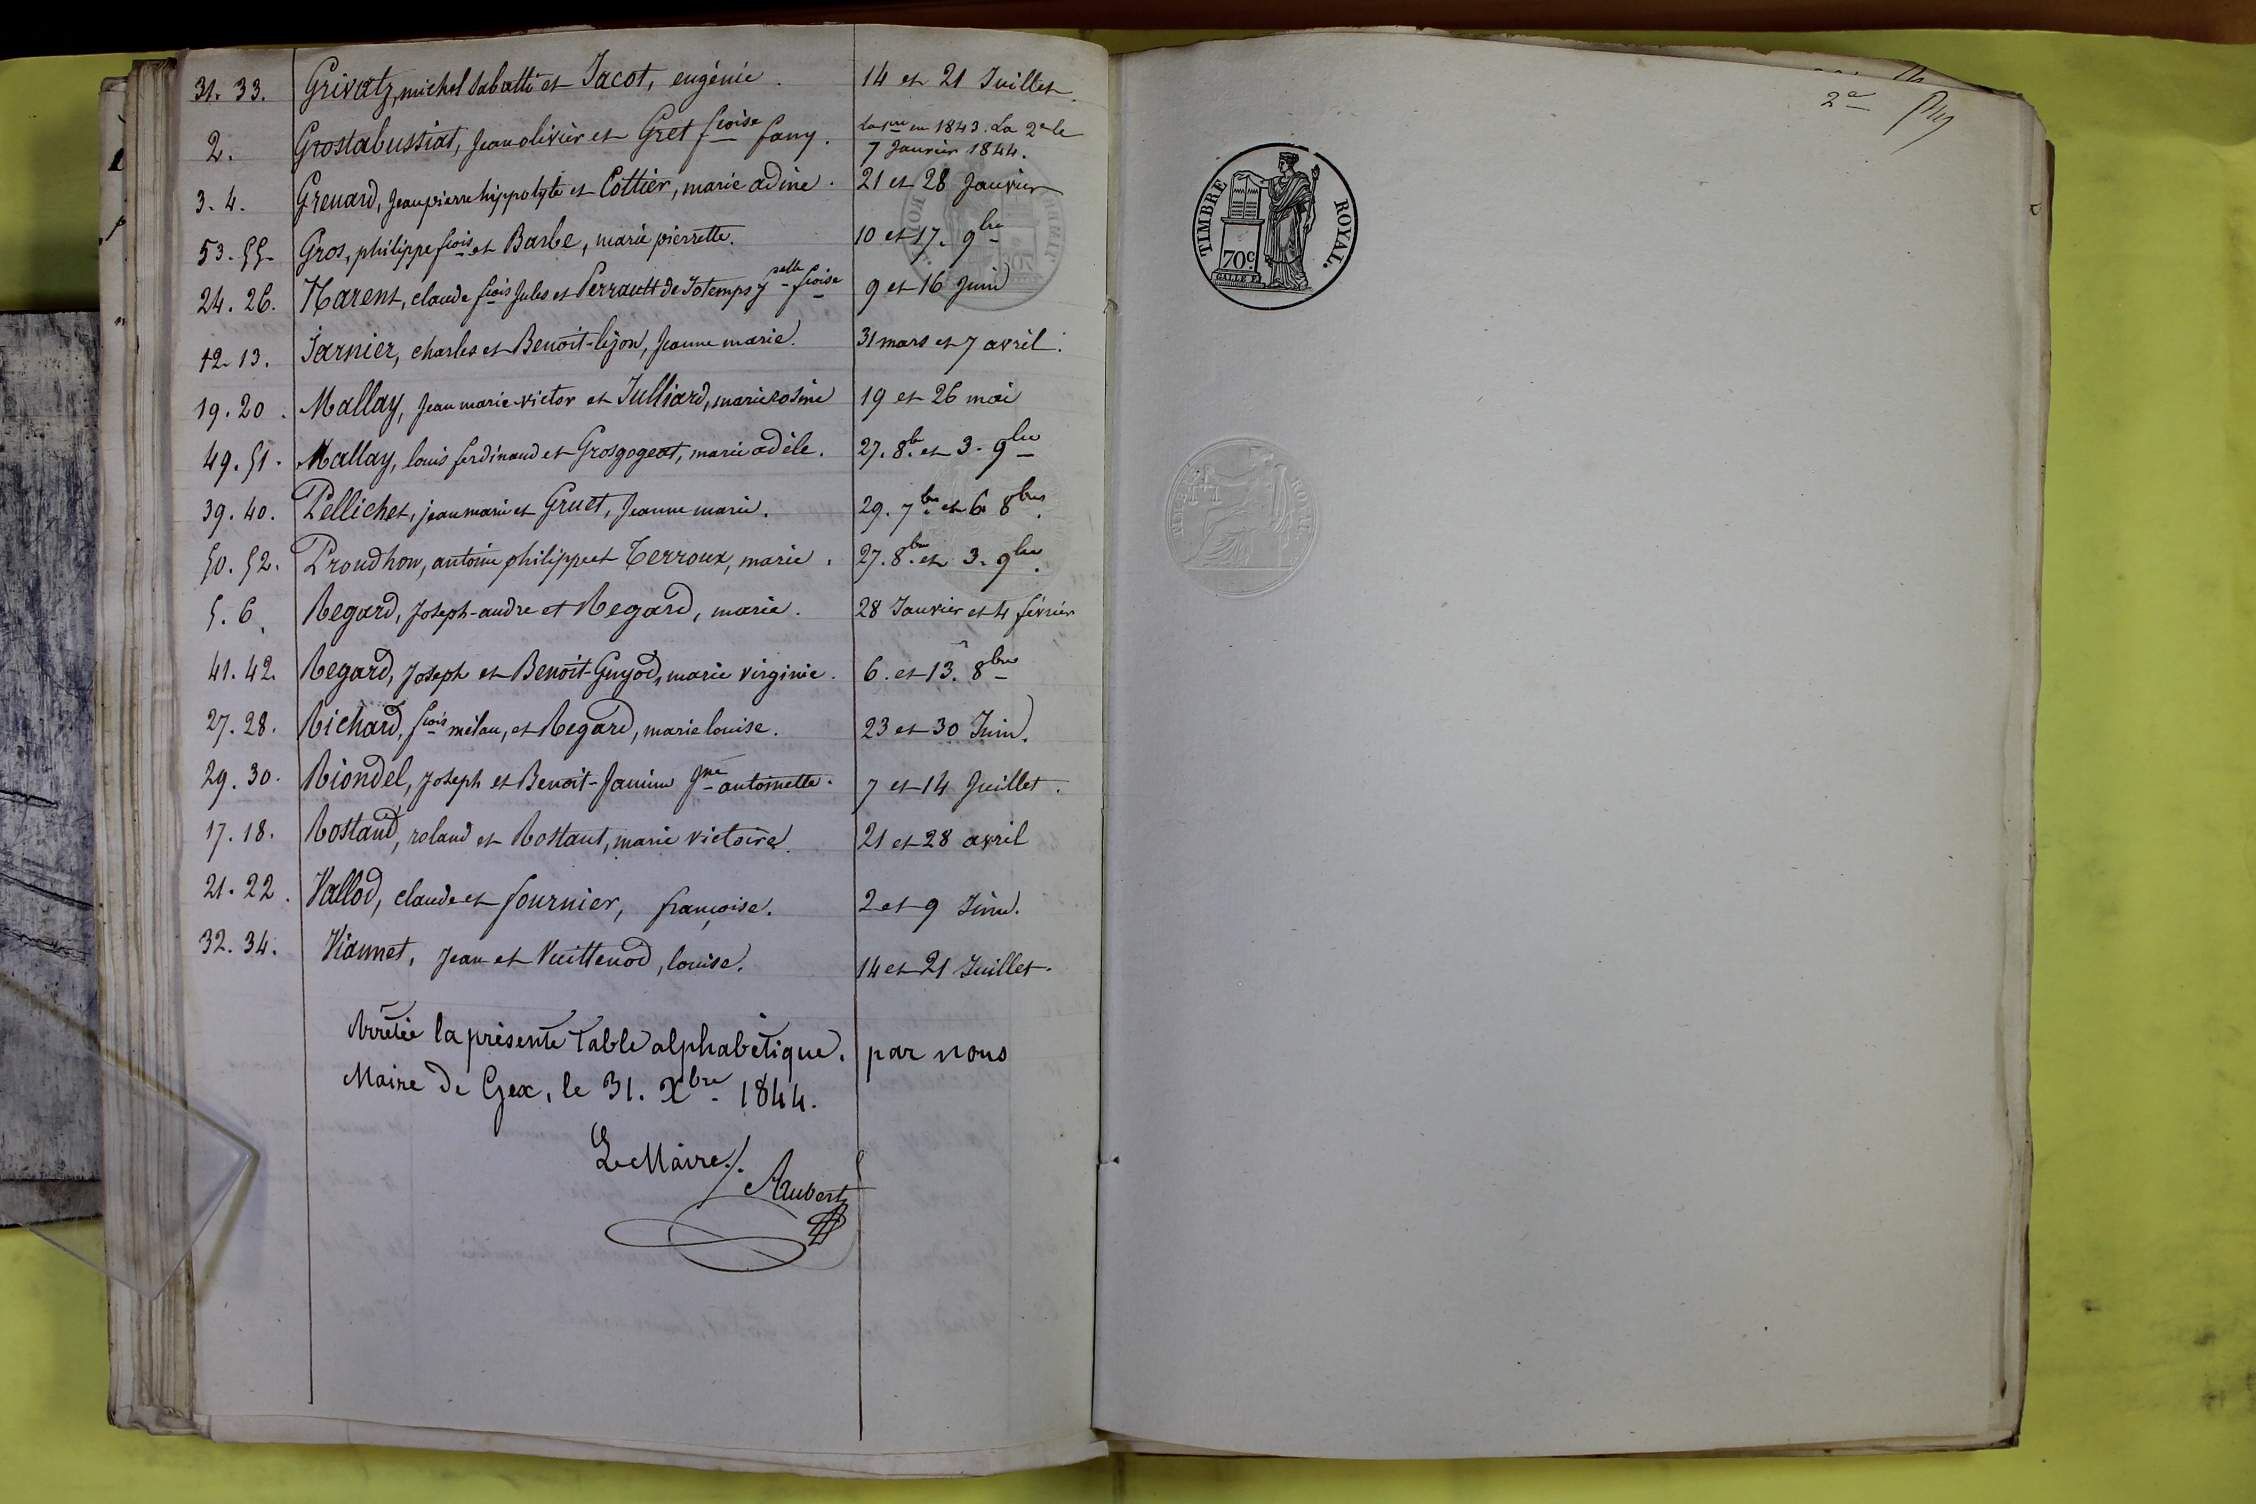 31. 33. Grivatz, michel Sabatti et Jacot, eugénie. 14 et 21 Juillet.
2. Grostabussiat, Jean olivier et Gret fcoise fany. la 1re en 1843. La 2e le
7 Janvier 1844.
3. 4. Grenard, Jean pierre hippolyte et Cottier, marie adine. 21 et 28 Janvier
53. 55. Gros, philippe fcois et Barbe, marie pierrette. 10 et 17. 9bre
24. 26. Harent, claude fcois Jules et Perrault de Jotemps fcoise 9 et 16 Juin
12. 13. Jarnier, charles et Benoit-lizon, Jeanne marie. 31 mars et 7 avril.
19. 20. Mallay, Jean marie victor et Julliard, marie rosine 19 et 26 mai
49. 51. Mallay, louis ferdinand et Grosgogeat, marie adèle. 27. 8bre et 3. 9bre
39. 40. Pellichet, jean marie et Gruet, Jeanne marie. 29. 7bre et 6 8bre.
50. 52. Proudhon, antoine philippe et Terroux, marie. 27. 8bre et 3. 9bre.
5. 6. Regard, Joseph-andre et Regard, marie. 28 Janvier et 4 février
41. 42. Regard, Joseph et Benoit-Guyod, marie virginie. 6. et 13. 8bre
27. 28. Richard, fcois mélan, et Regard, marie louise. 23 et 30 Juin.
29. 30. Riondel, Joseph et Benoit-Janin Jne antoinette. 7 et 14 Juillet.
17. 18. Rostand, roland et Rostant, marie victoire. 21 et 28 avril
21. 22. Vallod, claude et fournier, françoise. 2 et 9 Juin.
32. 34. Viannet, Jean et Vuittenod, louise. 14 et 21 Juillet.
Arrêtée la présente table alphabétique. par nous
Maire de Gex, le 31. Xbre 1844.
Le Maire.
Aubert
2e
TIMBRE ROYAL.
70c